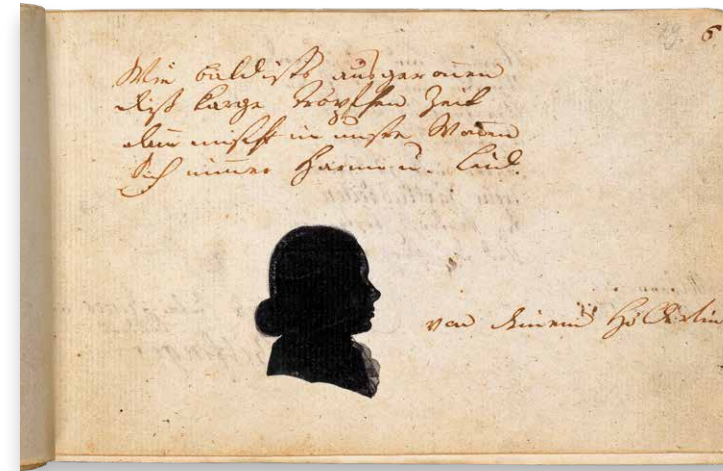 Wie bald ists ausgeronnen
diß karge Tröpfchen Zeit
dann mischt in unsre Wonnen
Sich nimmer Harm u. Leid.
von deinem Hölderlin
6